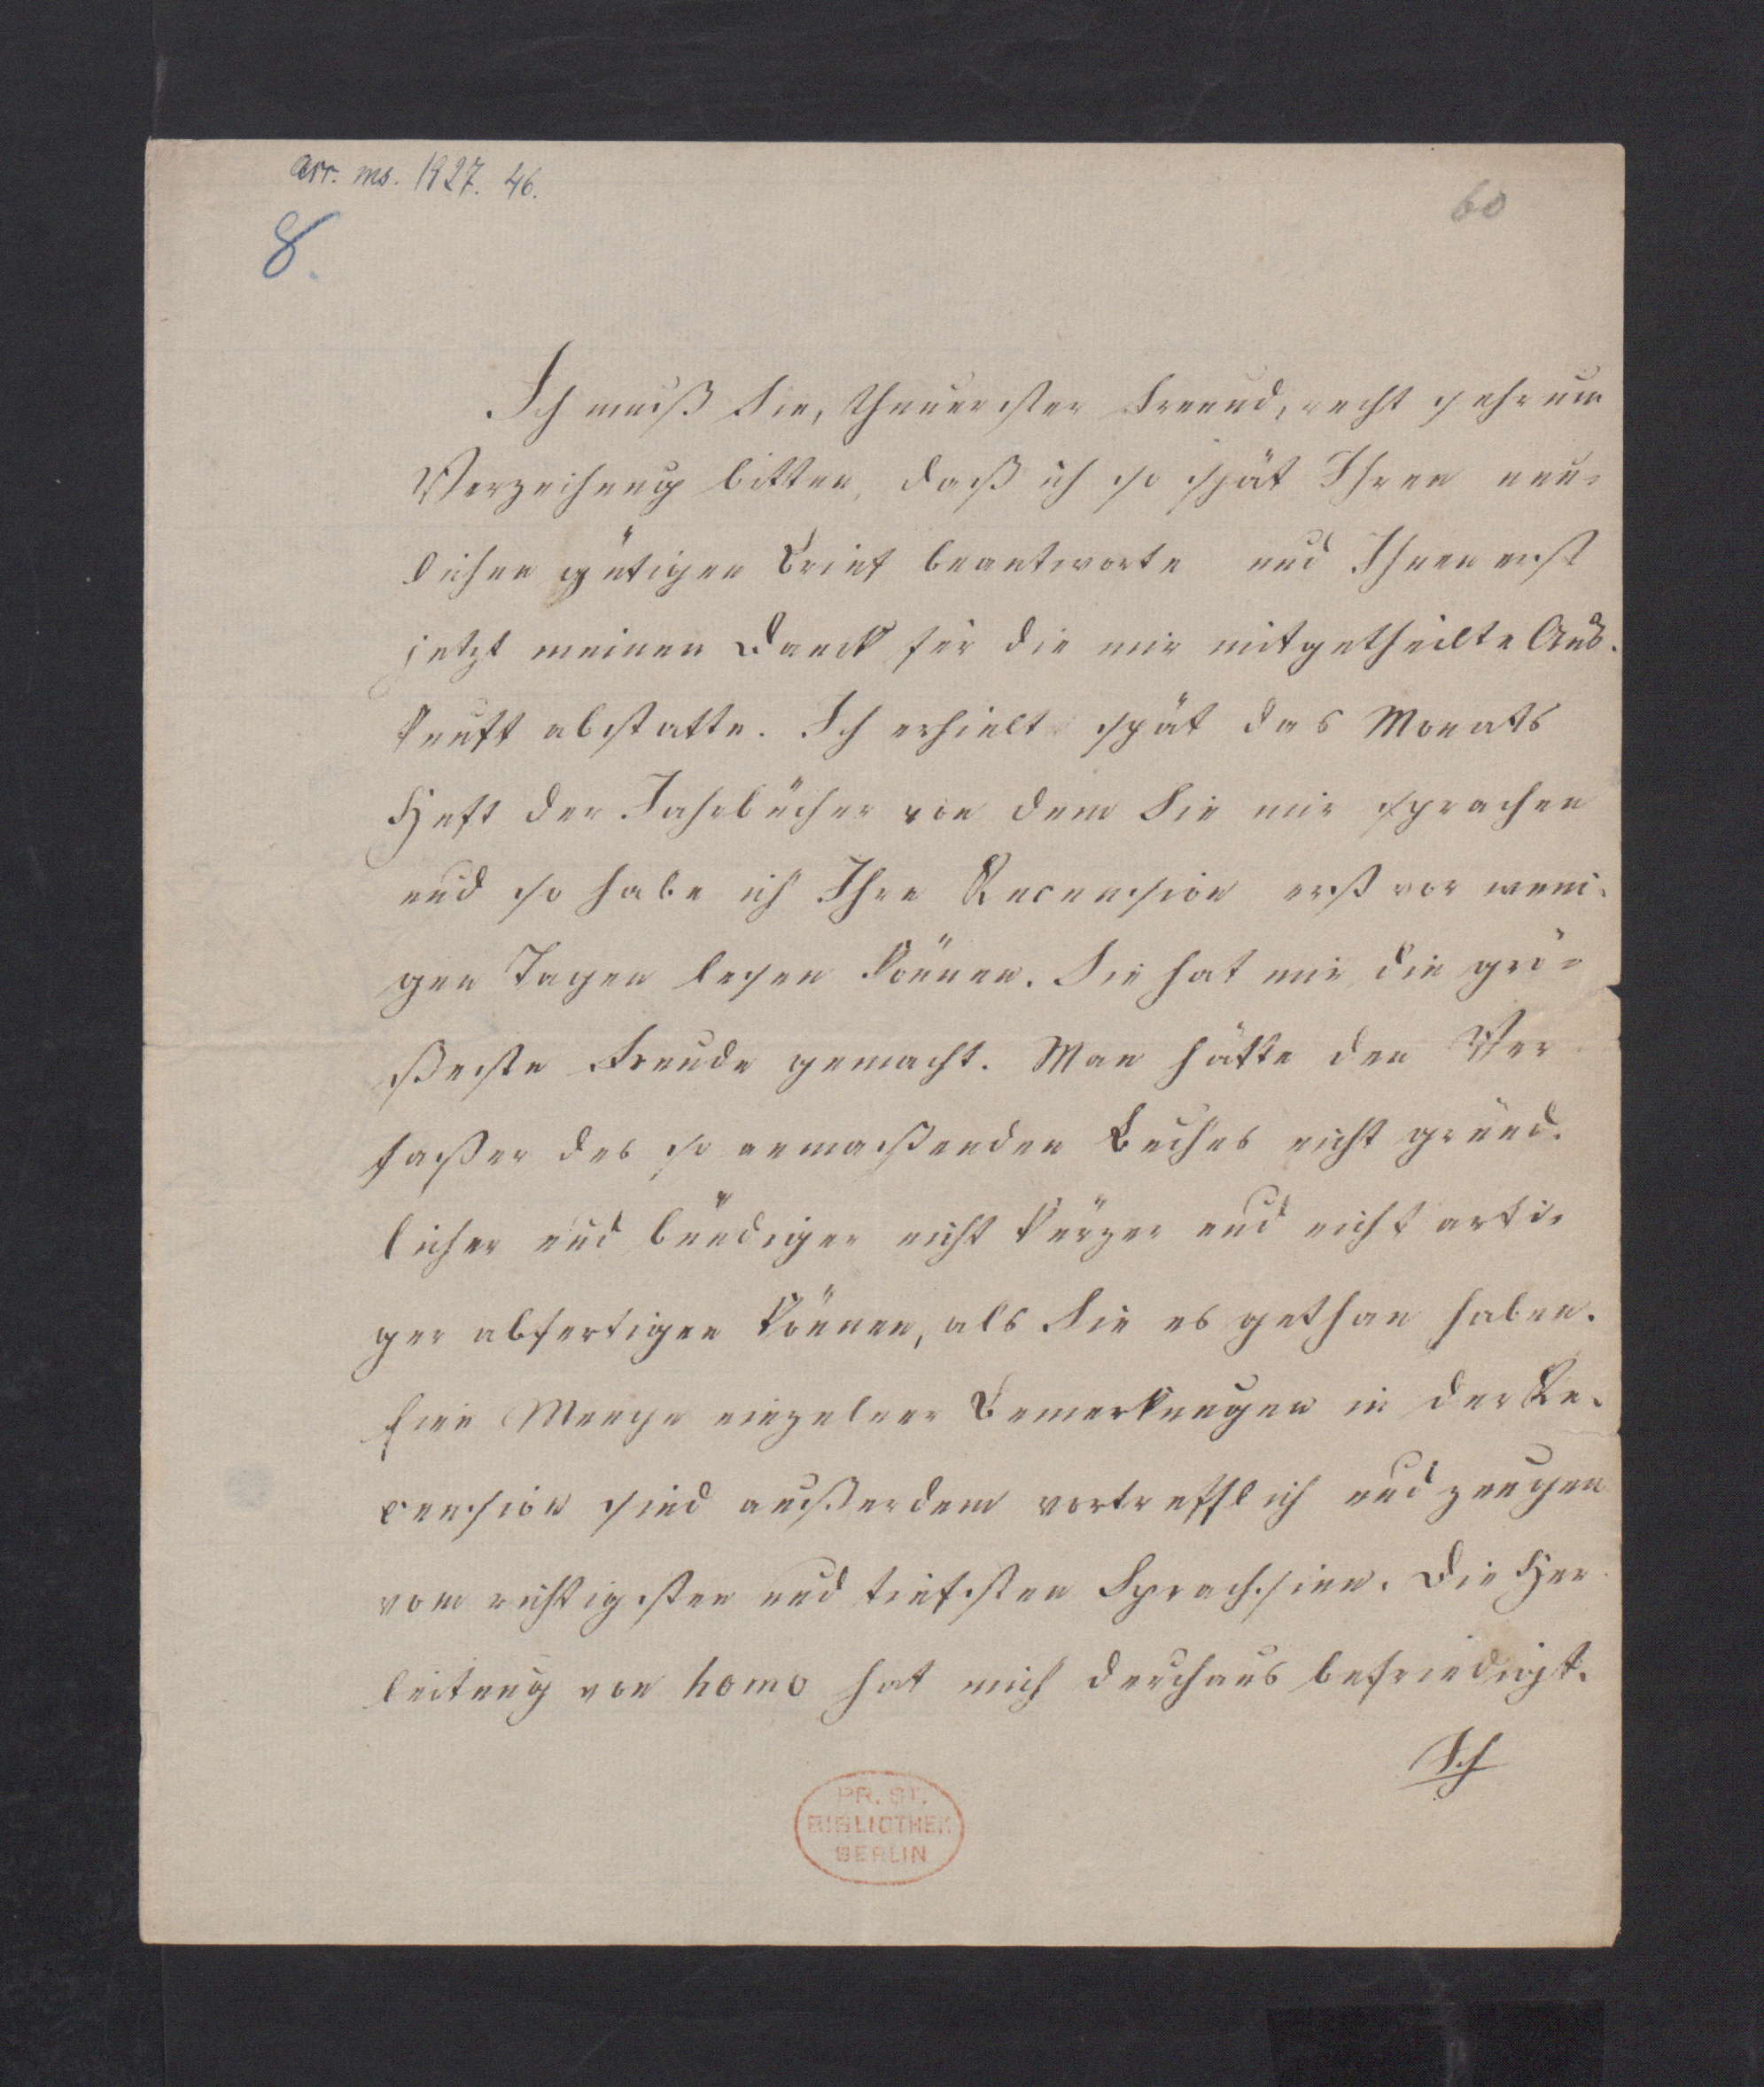 acc. ms. 1927. 46.
60
8.
Ich muß Sie, theuerster Freund, recht sehr um
Verzeihung bitten, daß ich so spät Ihren neu-
lichen gütigen Brief beantworte und Ihnen erst
jetzt meinen Danck für die mir mitgetheilte Aus-
kunft abstatte. Ich erhielt spät das Monats
Heft der Jahrbücher von dem Sie mir sprachen
und so habe ich Ihre Recension erst vor weni-
gen Tagen lesen können. Sie hat mir die grö-
ßeste Freude gemacht. Man hätte den Ver
faßer des so anmaßenden Buches nicht gründ-
licher und bündiger nicht kürzer und nicht arti-
ger abfertigen können, als Sie es gethan haben.
Eine Menge einzelner Bemerkungen in der Re-
cension sind außerdem vortrefflich und zeugen
vom richtigsten und tiefsten Sprachsinn. Die Her
leitung von homo hat mich durchaus befriedigt.
Ich
PR. ST.
BIBLIOTHEK
BERLIN